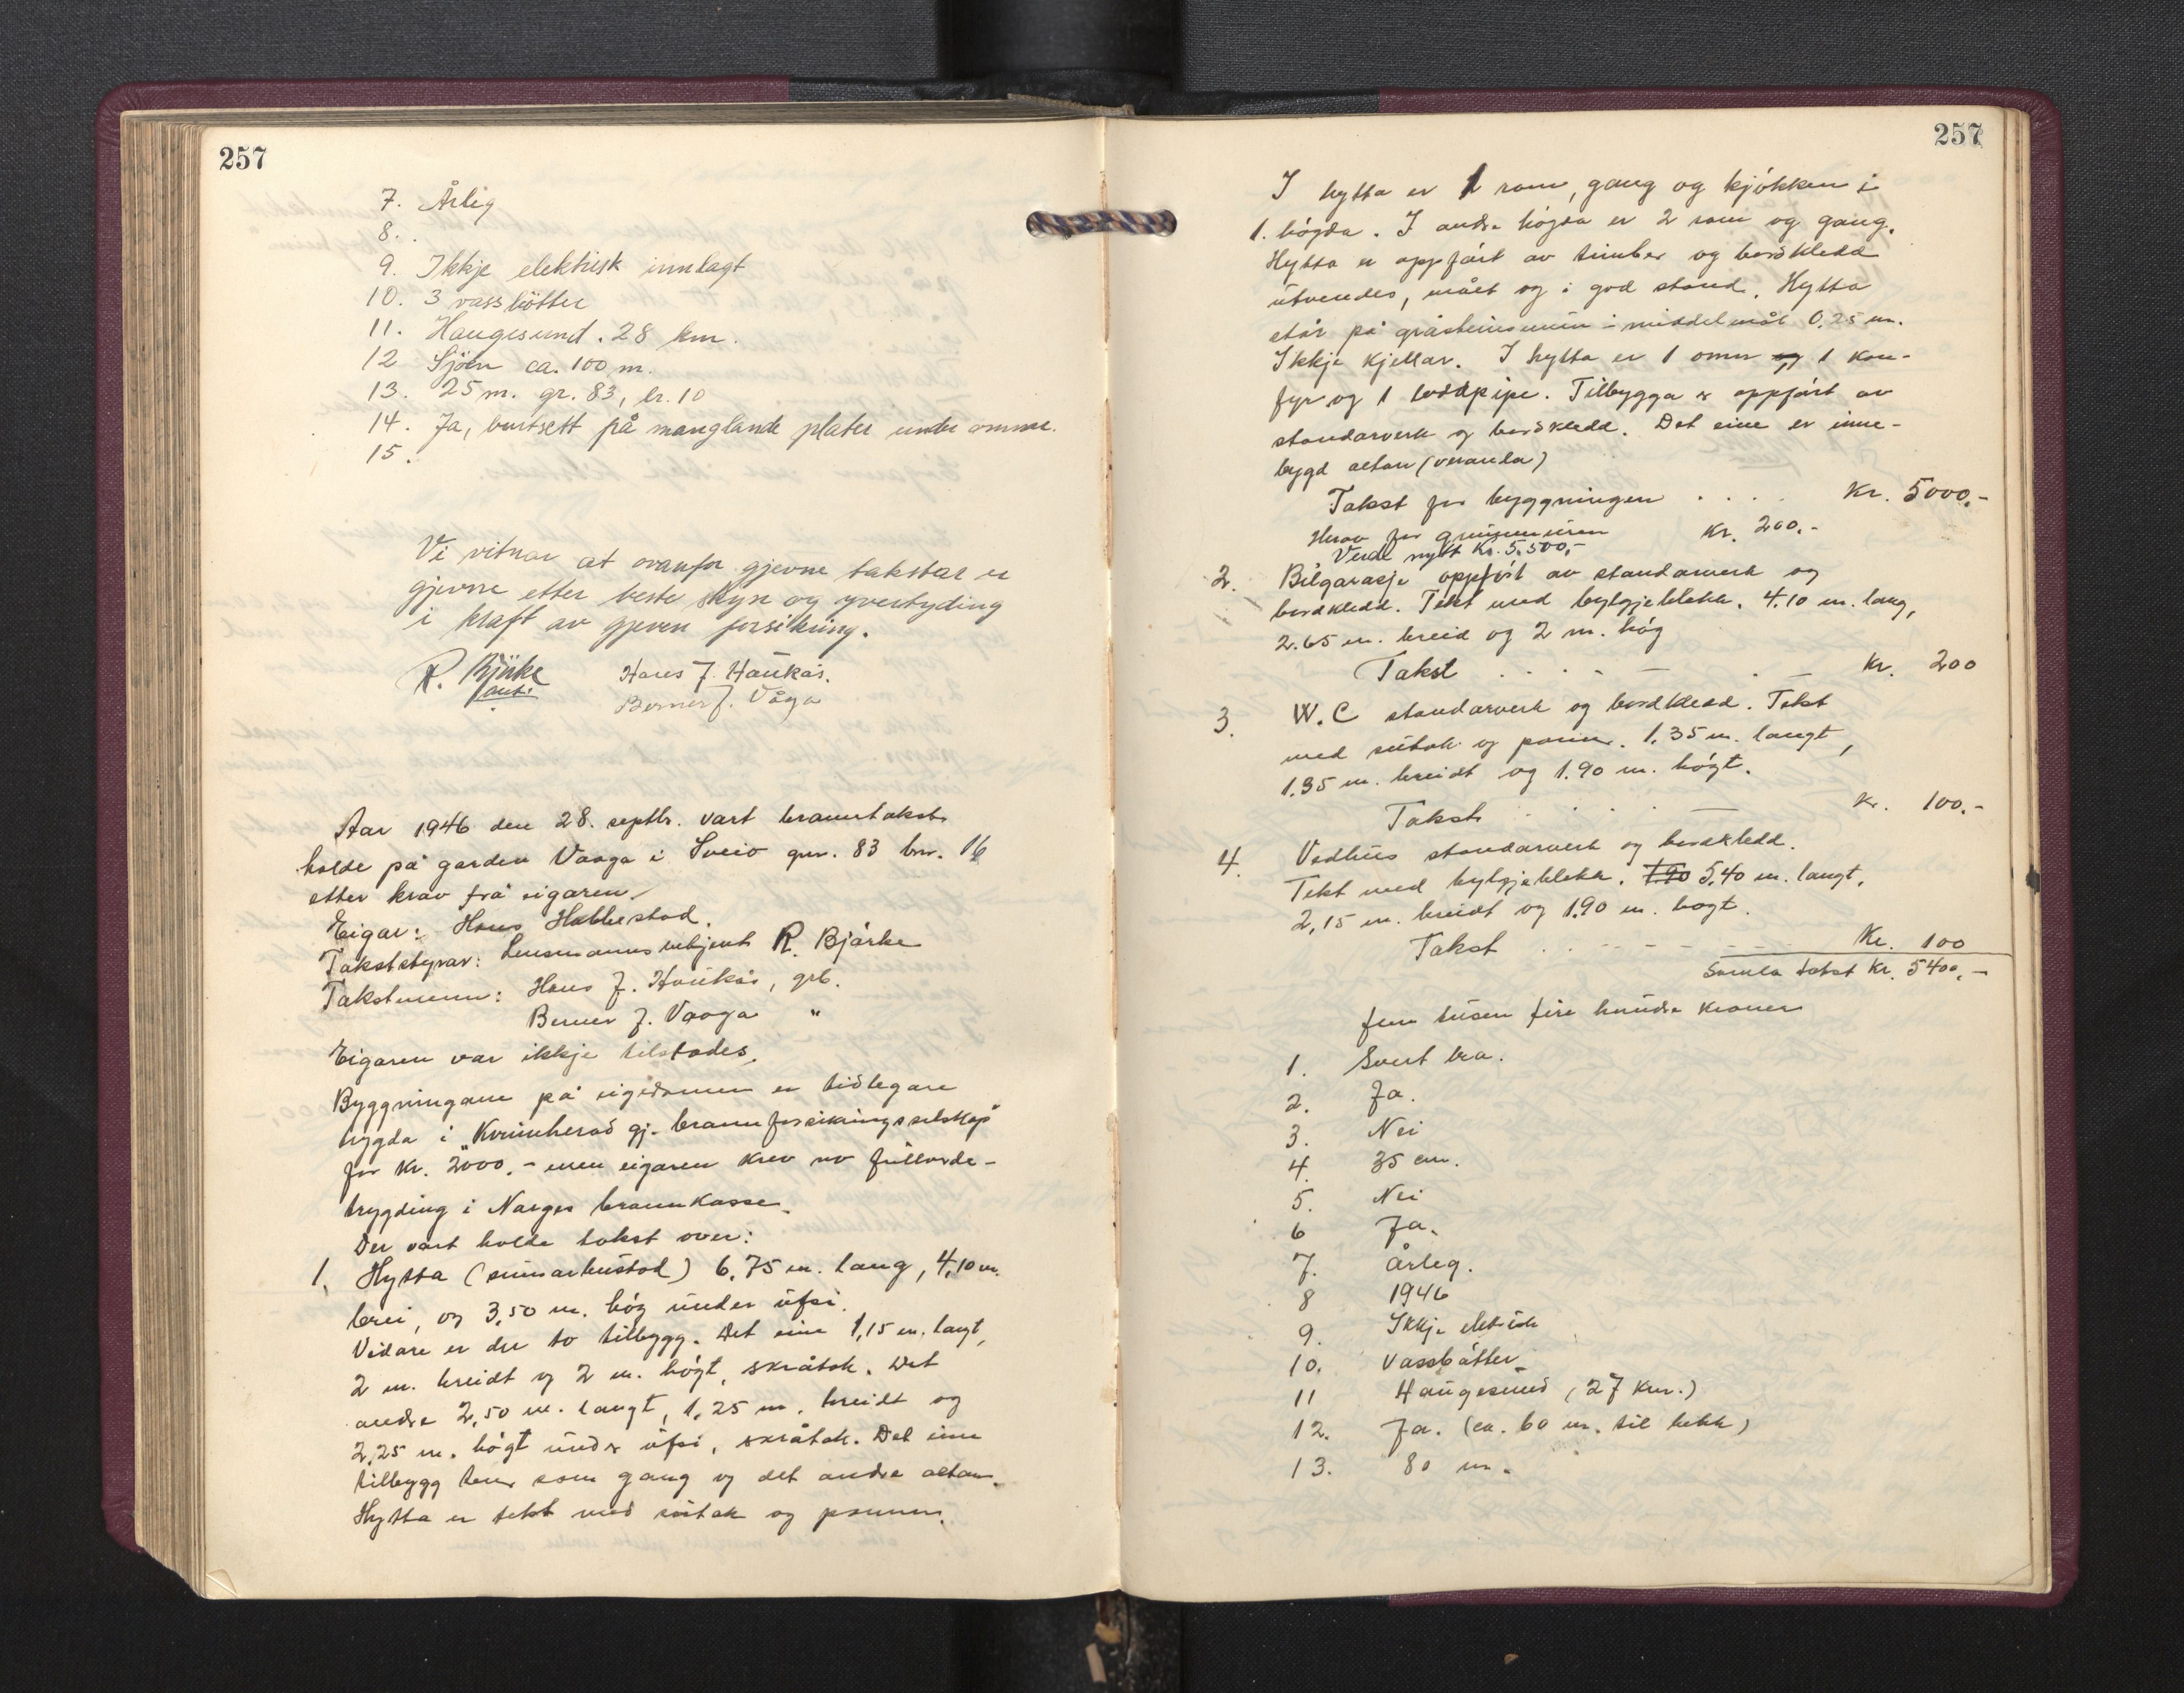 257
7. Årlig
8. .
9. Ikkje elektrisk innlagt
10. 3 vassbötter
11. Haugesund. 28 km.
12 Sjöen ca. 100 m.
13. 25 m. gr. 83, br. 10
14. Ja, burtsett på manglande plater under omnar.
15.
Vi vitnar at ovanfor gjevne takstar er
gjevne etter beste skjön og yvertyding
i kraft av gjeven forsikring.
R. Bjørke Hans J. Haukås.
Berner J. Våga
Aar 1946 den 28. septbr. vart branntakst
holde på garden Vaaga i Sveio gnr. 83 bnr. 16
etter krav frå eigaren.
Eigar: Hans Habbestad.
Takststyrar: Lensmannsbetjent R. Bjørke
Takstmenn: Hans J. Haukås, grb.
Berner J. Vaaga "
Eigaren var ikkje tilstades.
Byggningane på eigedomen er tidlegare
trygda i "Kvinnherad gj. brannforsikringsselskap"
for kr. 2000.- men eigaren krev no fullverde-
trygding i Norges brannkasse.
Der vart halde takst over:
1. Hytta (sumarbustad) 6,75 m. lang, 4,10 m.
brei, og 3,50 m. høg under ufsi.
Vidare er der to tilbygg. Det eine 1,15 m. langt,
2 m. breidt og 2 m. høgt, skråtak. Det
andre 2,50 m. langt, 1,25 m. breidt og
2,25 m. høgt under ufsi, skråtak. Det eine
tilbygg tener som gang og det andre altan.
Hytta er tekt med sutak og panner.
257
I hytta er 1 rom, gang og kjøkken i
1. høgda. I andre høgda er 2 rom og gang.
Hytta er oppført av timber og bordkledd
utvendes, målt og i god stand. Hytta
står på gråsteinsmur i middelmål 0,25 m.
Ikkje kjellar. I hytta er 1 omn og 1 kom-
fyr og 1 loddpipe. Tilbygga er oppført av
standarverk og bordkledd. Det eine er inne-
bygd altan (veranda)
Takst for byggningen . . . . Kr. 5000.-
Herav for grunnmuren Kr. 200.-
Verde nytt Kr. 5.500,-
2. Bilgarasje oppført av standarverk og
bordkledd. Tekt med bylgjeblekk. 4.10 m. lang,
2.65 m. breid og 2 m. høg
Takst . . . . Kr. 200
3. W.C standarverk og bordkledd. Tekt
med sutak og panner. 1.35 m. langt,
1.35 m. breidt og 1.90 m. høgt.
Takst . . . . Kr. 100.-
4. Vedhus standarverk og bordkledd.
Tekt med bylgjeblekk. 1.90 5,40 m. langt,
2,15 m. breidt og 1.90 m. høgt.
Takst . . . . Kr. 100
Samla takst Kr. 5400.-
fem tusen fire hundre kroner
1. Svert bra.
2. Ja.
3. Nei
4. 35 cm.
5. Nei
6 Ja.
7. Årleg.
8 1946
9. Ikkje elektrisk
10. Vassbøtter
11 Haugesund (27 km.)
12. Ja. (ca. 60 m. til bekk)
13. 80 m.